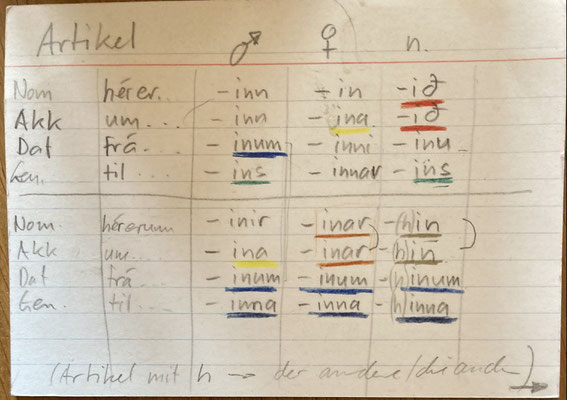 Artikel ♂ ♀ n.
Nom hér er.. - inn - in - ið
Akk um... - inn - ina - ið
Dat frá... - inum - inni - inu
Gen. til.... - ins - innar - ins
Nom. hér eru - inir - inar - (h)in
Akk um... - ina - inar - (h)in
Dat frá... - inum - inum - (h)inum
Gen. til.... - inna - inna - (h)inna
(Artikel mit h → der andere / die andere) →